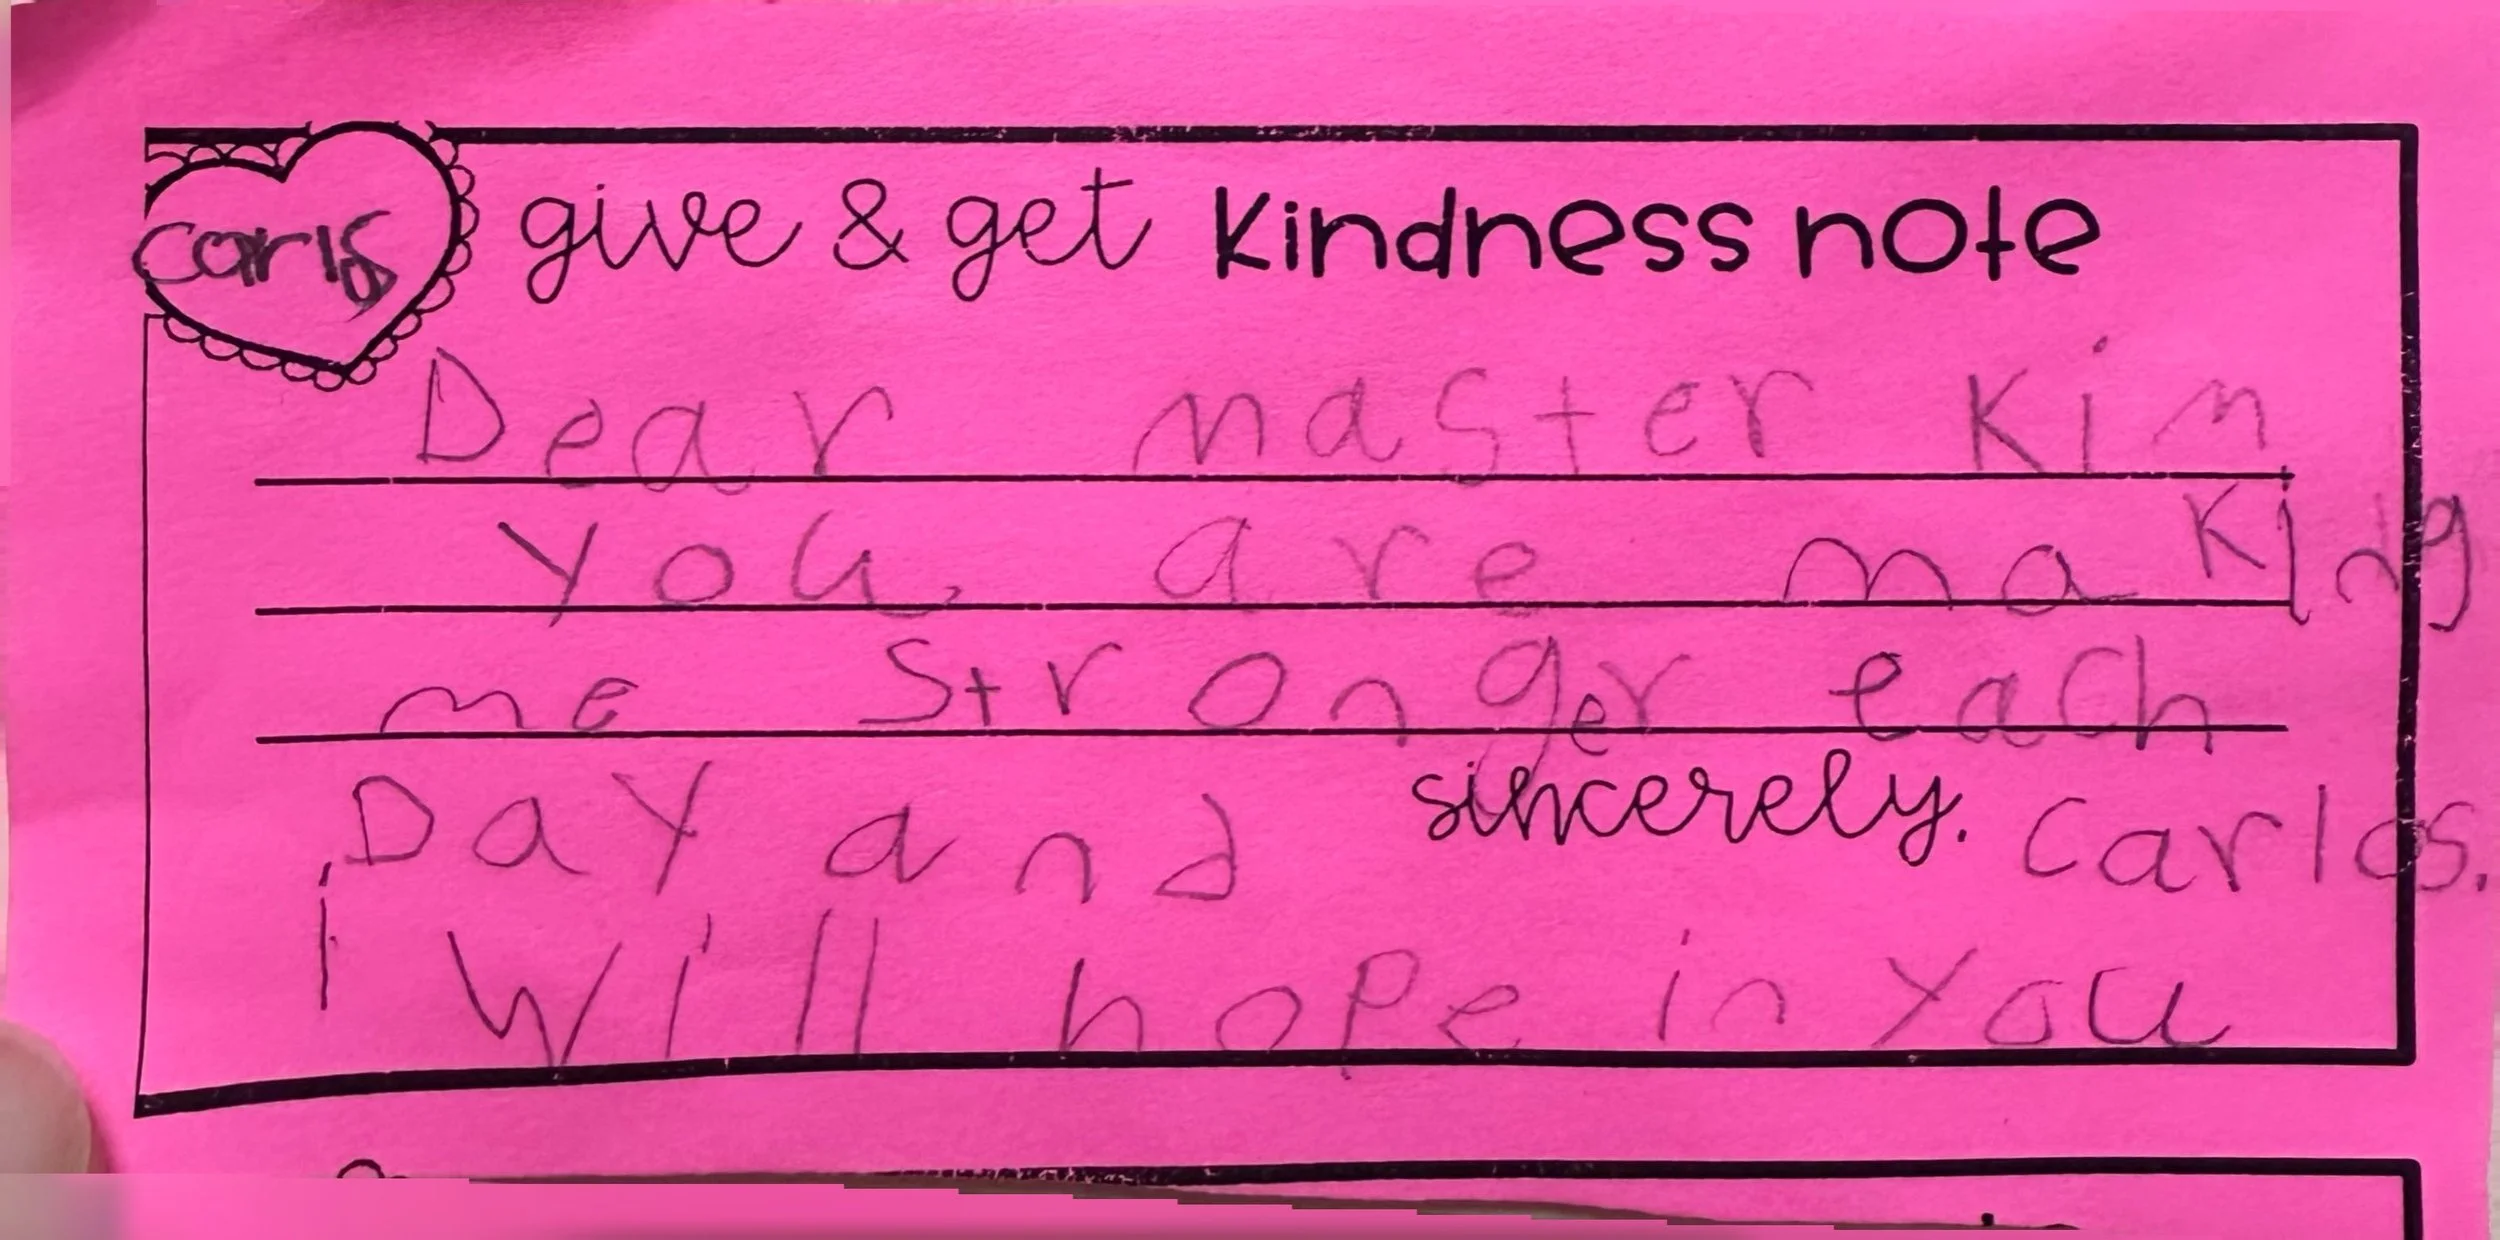 Carlos
give & get Kindness note
Dear master Kim
you, are making
me stronger each
Day and
sincerely. Carlos.
i Will hope in You